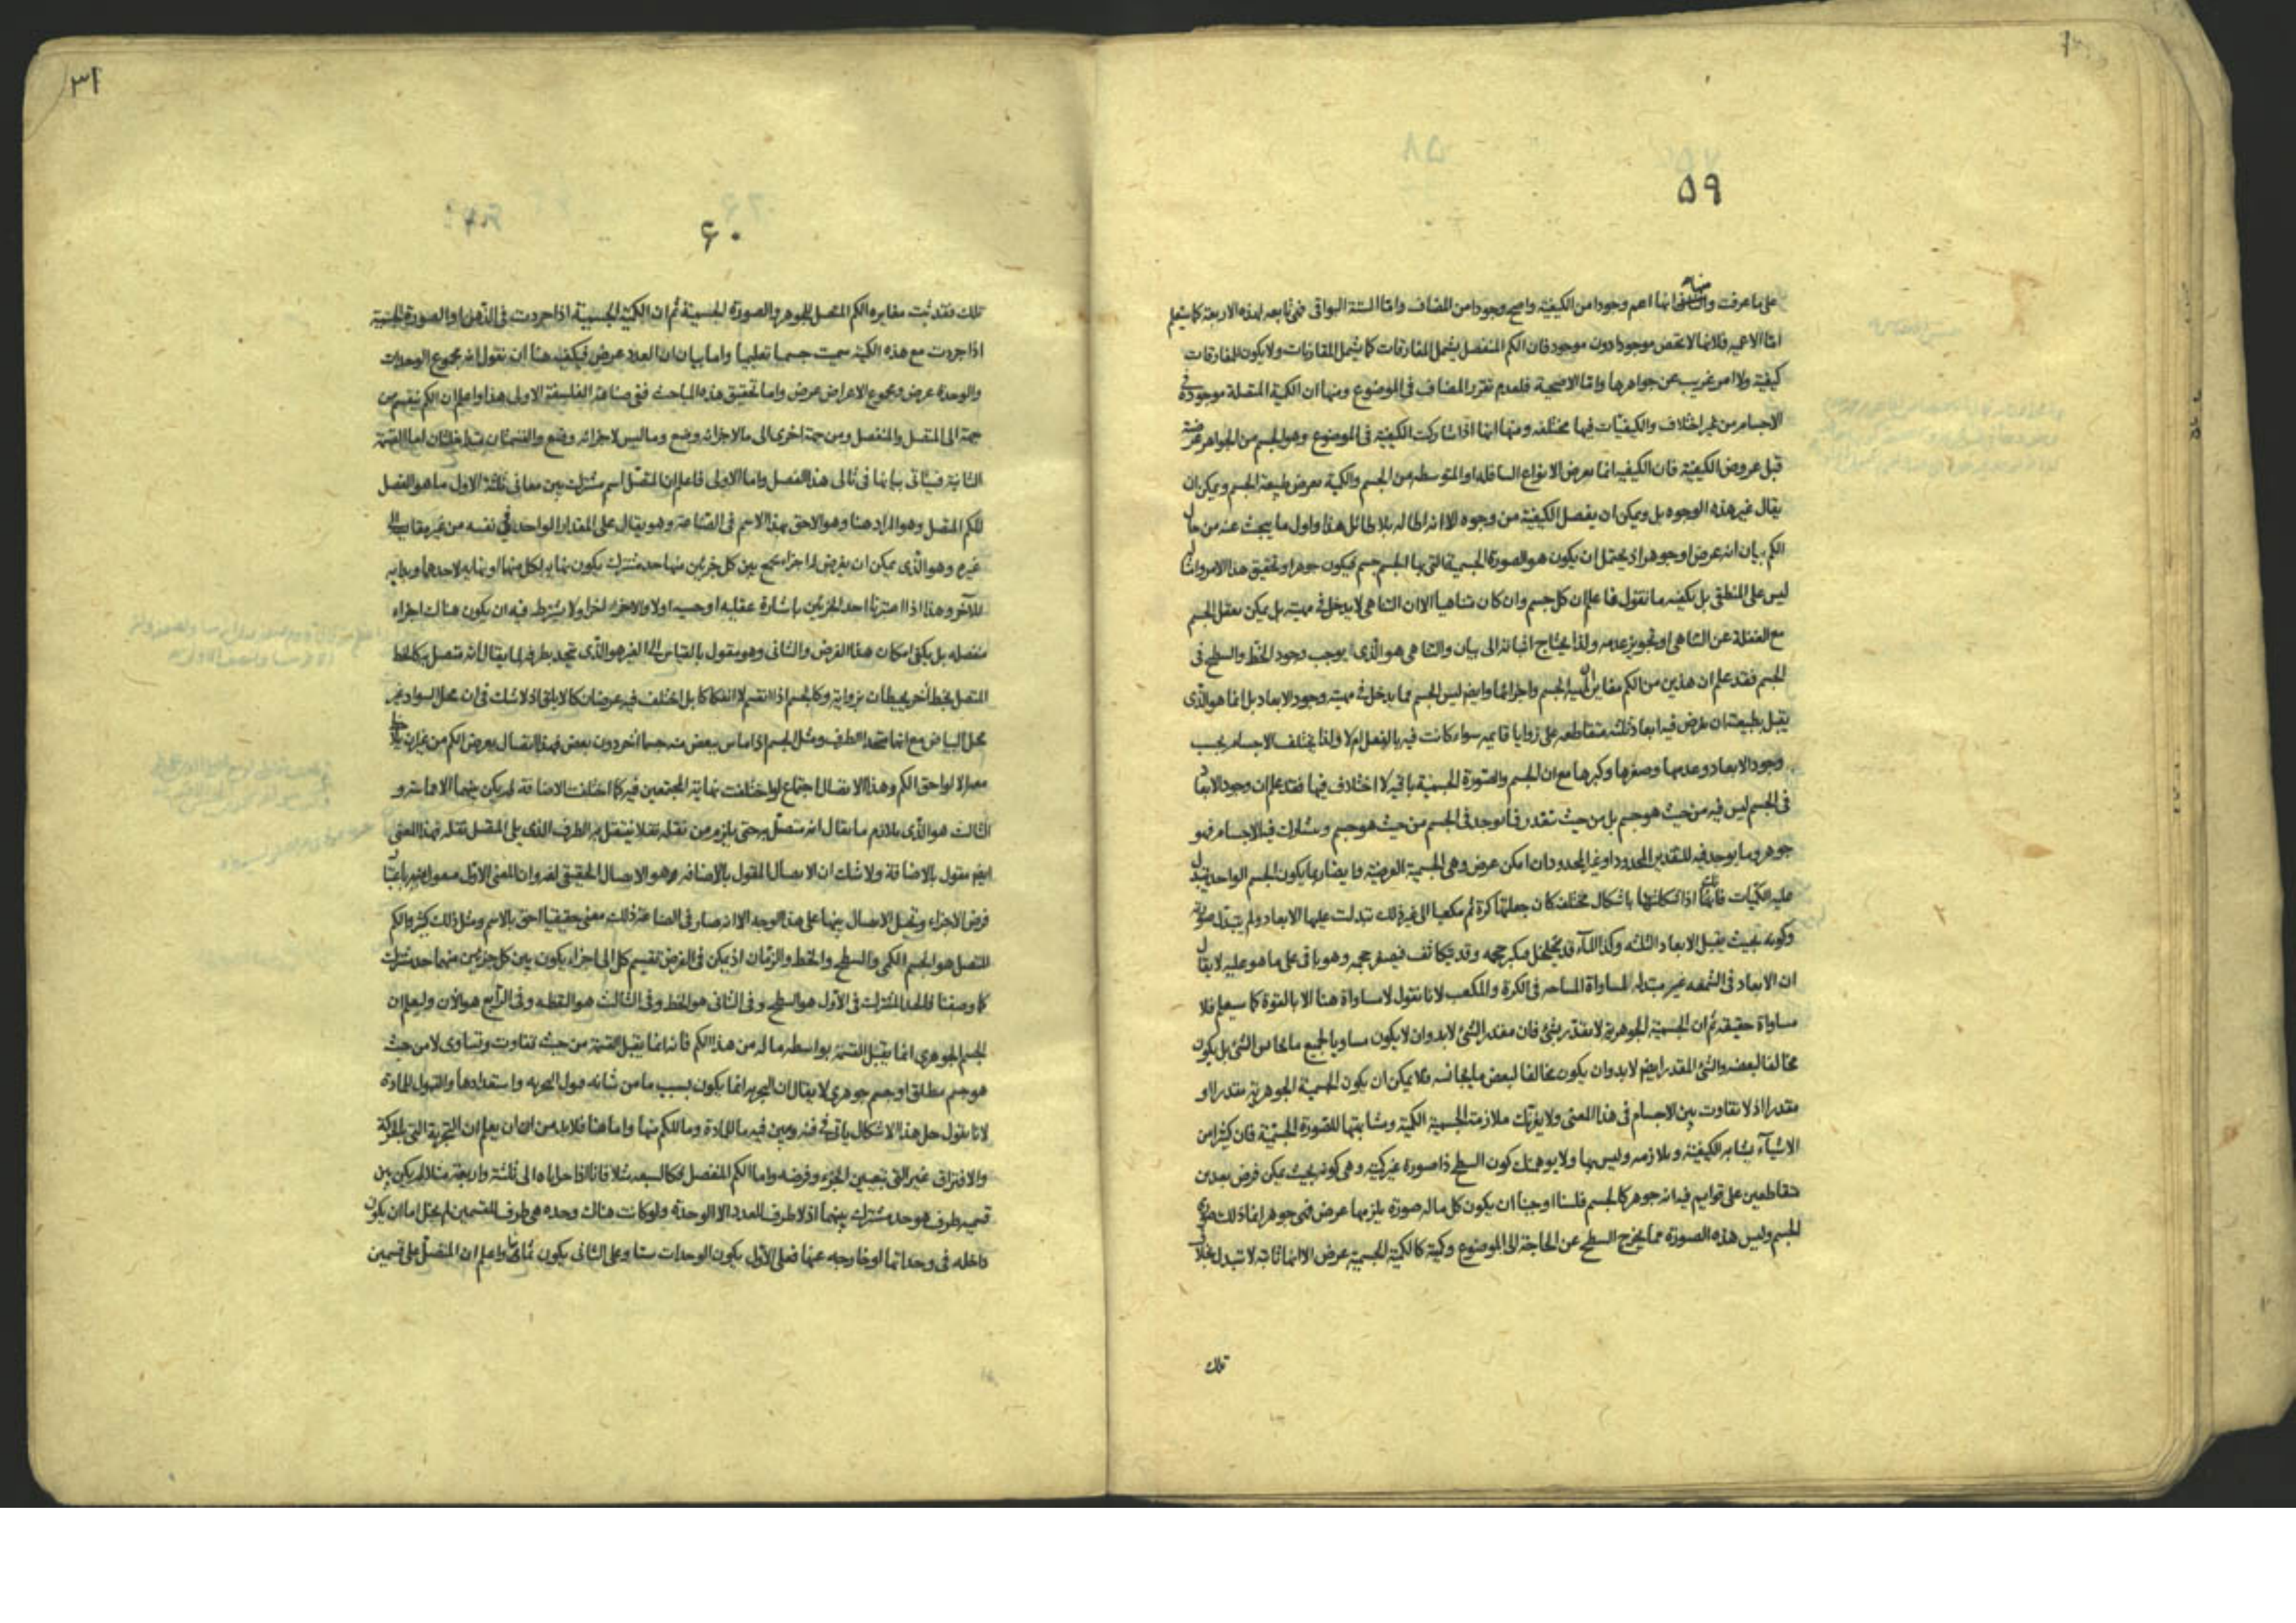 ٥٩
على ما عرفت وانها اعم وجودا من الكيفية واصح وجودا من المضاف واما الستة البواقى فهى تابعه لهذه الاربعة كما ستعلم
اما الاعمية فلانها لا تخص موجودا دون موجود فان الكم المنفصل يشمل المفارقات كما يشمل المقارنات ولا يكون للمفارقات
كيفية ولا امر غريب عن جواهرها واما الاصحية فلعدم تقرر المضاف فى الموضوع ومنها ان الكمية المتصلة موجودة فى
الاجسام من غير اختلاف والكيفيات فيها مختلفه ومنها انها اذا شاركت الكيفية فى الموضوع وهو الجسم من الجواهر عرضته
قبل عروض الكيفية فان الكيفيه انما تعرض الانواع السافله او المتوسطه من الجسم والكمية تعرض طبيعة الجسم ويمكن ان
يقال غير هذه الوجوه بل ويمكن ان يفصل الكيفية من وجوه الا انه اطاله بلا طائل هذا واول ما يبحث عنه من حال
الكم بيان انه عرض او جوهر اذ يحتمل ان يكون هو الصورة الجسمية التى بها الجسم جسم فيكون جوهرا وتحقيق هذا الامر وان
ليس على المنطقى بل يكفيه ما نقول فاعلم ان كل جسم وان كان متناهيا الا ان التناهى لا يدخل فى مهيته بل يمكن تعقل الجسم
مع الغفلة عن التناهى او تجويز عدمه ولذا يحتاج اثباته الى بيان والتناهى هو الذى يوجب وجود الخط والسطح فى
الجسم فقد علم ان هذين من الكم مغايران لمهية الجسم واجزائها وايضا ليس الجسم مما يدخل فى مهيته وجود الابعاد بل انما هو الذى
يقبل بطبيعته ان يفرض فيه ابعاد ثلثه متقاطعه على زوايا قايمه سواء كانت فيه بالفعل ام لا ولذا يختلف الاجسام بحسب
وجود الابعاد وعدمها وصغرها وكبرها مع ان الجسم والصورة الجسمية باقيه لا اختلاف فيها فقد علم ان وجود الابعاد
فى الجسم ليس فيه من حيث هو جسم بل من حيث تقدر فما يوجد فى الجسم من حيث هو جسم ويشارك فيه الاجسام فهو
جوهر وما يوجد فيه للتقدير المحدود او غير المحدود ان امكن عرض وهى الجسمية العرضية وما يضاربها يكون الجسم الواحد يتبدل
عليه الكميات فانها اذا شكلتها باشكال مختلفه كان جعلتها كرة ثم مكعبا الى غير ذلك تبدلت عليها الابعاد ولم يتبدل صورته
وكونه بحيث يقبل الابعاد الثلثه وكذا الماء قد يتخلخل فيكبر حجمه وقد يتكاثف فيصغر حجمه وهو باق على ما هو عليه لا يقال
ان الابعاد فى الشمعه غير مبتدله لمساواة المساحه فى الكرة والمكعب لانا نقول لا مساواة هنا الا بالقوة كما سيعلم فلا
مساواة حقيقه ثم ان الجسمية الجوهرية لا يقدر بشئ فان مقدر الشئ لا بد وان لا يكون مساويا لجميع ما يجانس الشئ بل يكون
مخالفا لبعضه والشئ المقدر ايضا لا بد وان يكون مخالفا لبعض ما يجانسه فلا يمكن ان يكون الجسمية الجوهرية مقدرا او
مقدرا اذ لا تفاوت بين الاجسام فى هذا المعنى ولا يغرنك ملازمة الجسمية الكمية ومشابهتها للصورة الجسمية فان كثيرا من
الاشيآء يشابه الكيفية ويلازمه وليس بها ولا يوهمنك كون السطح ذا صورة غير كميته وهى كونه بحيث يمكن فرض بعدين
متقاطعين على قوايم فيه انه جوهر كالجسم فلسنا اوجبنا ان يكون كل ما له صورة يلزمها عرض فهى جوهر انما ذلك صورة
الجسم وليس هذه الصورة مما يخرج السطح عن الحاجة الى الموضوع وكميته كالكمية الجسمية عرض الا انها ثابته لا تتبدل بخلاف
تلك
٣١
٦٠
تلك فقد ثبت مغايره الكم المتصل للجوهر والصورة الجسمية ثم ان الكمية الجسمية اذا جردت فى الذهن او الصورة الجسمية
اذا جردت مع هذه الكمية سميت جسما تعليميا واما بيان ان العدد عرض فيكفيه هنا ان نقول انه مجموع الوحدات
والوحدة عرض ومجموع الاعراض عرض واما تحقيق هذه المباحث ففى صناعة الفلسفة الاولى هذا واعلم ان الكم ينقسم من
جهة الى المتصل والمنفصل ومن جهة اخرى الى ما لاجزائه وضع وما ليس لاجزائه وضع والقسمتان متداخلتان اما القسمة
الثانية فسياتى بيانها فى تالى هذا الفصل واما الاولى فاعلم ان المتصل اسم مشترك بين معانى ثلثة الاول ما هو الفصل
للكم المتصل وهو المراد هنا وهو الاحق بهذا الاسم فى الصناعة وهو يقال على المقدار الواحد فى نفسه من غير مقايسه الى
غيره وهو الذى يمكن ان يفرض له اجزاء يجمع بين كل جزئين منها حد مشترك يكون نهاية لكل منهما او نهايه لاحدهما وبدايه
للآخر وهذا اذا اعتبرنا احد الجزئين باشارة عقليه او حسيه اولا والاخر اخرا ولا يشترط فيه ان يكون هناك اجزاء
منفصله بل يكفى امكان هذا الفرض والثانى وهو مقول بالقياس الى الغير هو الذى تتحد بطرفه ما يقال انه متصل به كالخط
المتصل بخط آخر يحيطان بزاوية وكالجسم اذا انقسم لا انفكاكا بل اختلف فيه عرضان كالابلق اذ لا شك فى ان محل السواد غير
محل البياض مع انهما متحدا الطرف ومثل الجسم اذا ماس ببعض منه جسما آخر دون بعض فهذا اتصال يعرض الكم من غير ان يلاحظ
معه الا لواحق الكم وهذا الاتصال اجتماع لو اختلفت نهاية المجتمعين فيه كما اختلفت الاضافة لم يكن بينهما الا مماسة و
الثالث هو الذى يلازم ما يقال انه متصل به حتى يلزم من نقله نقلا ينتقل به الطرف الذى يلى المتصل نقله فهذا المعنى
ايضا مقول بالاضافة ولا شك ان الاتصال المقول بالاضافه وهو الاتصال الحقيقى لغه وان المعنى الاول منقول اليه باعتبار
فرض الاجزاء وتخيل الاتصال بينها على هذا الوجه الا انه صار فى الصناعة ذلك معنى حقيقيا احق بالاسم ومثل ذلك كثير والكم
المتصل هو الجسم الكمى والسطح والخط والزمان اذ يمكن فى الفرض تقسيم كل الى اجزاء يكون بين كل جزئين منهما حد مشترك
كما وصفنا فالحد المشترك فى الاول هو السطح وفى الثانى هو الخط وفى الثالث هو النقطه وفى الرابع هو الآن وليعلم ان
الجسم الجوهرى انما يقبل القسمة بواسطه ما له من هذا الكم فانه انما يقبل القسمة من حيث تفاوت وتساوى لا من حيث
هو جسم مطلق او جسم جوهرى لا يقال ان التجزيه انما يكون بسبب ما من شانه قبول التجزيه واستعدادها والقبول للمادة
لانا نقول حل هذا الاشكال ياتى فى فنه ويبين فيه ما للمادة وما للكم منها واما هنا فلا بد من ان يعلم ان التجزية التى بالحركة
والافتراق غير التى بتعيين الجزء وفرضه واما الكم المنفصل فكالسبعه مثلا فانا اذا حللناه الى ثلثة واربعة مثلا لم يكن بين
قسميه طرف هو حد مشترك بينهما اذ لا طرف للعدد الا الوحدة ولو كانت هناك وحده هى طرف للقسمين لم يخل اما ان يكون
داخله فى وحداتها او خارجه عنها فعلى الاول يكون الوحدات ستا وعلى الثانى يكون ثمانيا واعلم ان المنفصل على قسمين